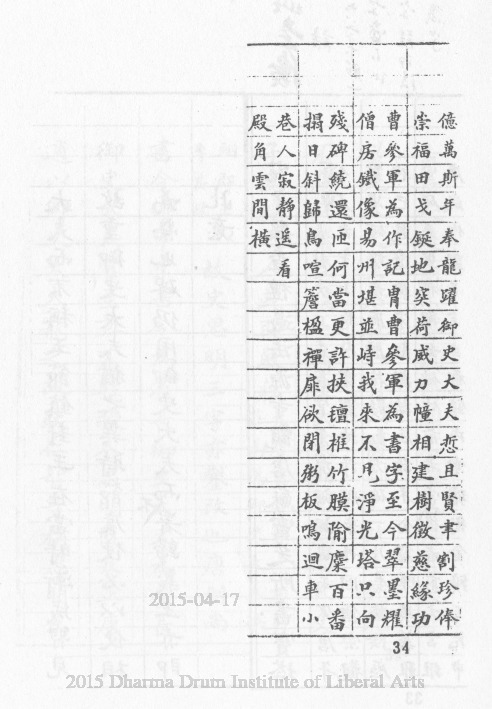 億萬斯年奉龍躍御史大夫悊且賢聿割珍俸
崇福田戈鋋地突荷威力幢相建樹徵慈緣功
曹參軍為作記冑曹參軍為書字至今翠墨耀
僧房鐵像易州堪並峙我來不見淨光塔只向
殘碑繞還匝何當更許挾椎竹膜隃麋百番
搨日斜歸鳥喧簷楹禪扉欲閉粥板鳴迴車小
巷人寂靜遥看
殿角雲間橫
34
2015-04-17
2015 Dharma Drum Institute of Liberal Arts